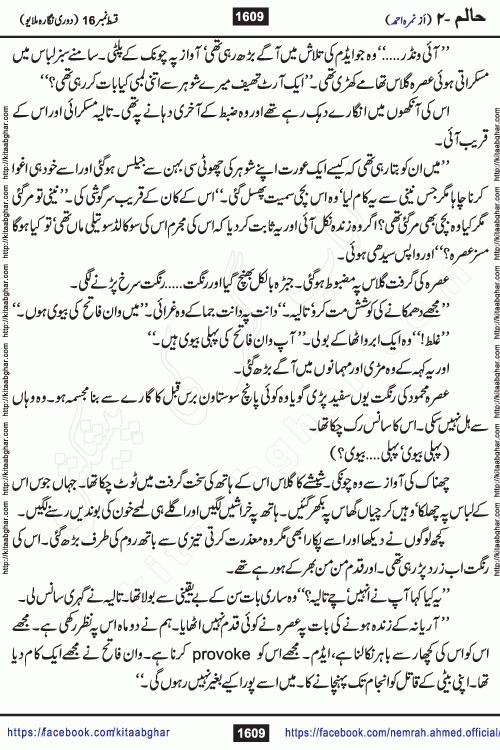 حالم -۲ (از نمرہ احمد) 1609 قسط نمبر 16 (دوری نگارہ ملایو)
’’آئی ونڈر.....‘‘ وہ جو ایڈم کی تلاش میں آگے بڑھ رہی تھی‘ آواز پہ چونک کے پلٹی۔ سامنے سبز لباس میں
مسکراتی ہوئی عصرہ گلاس تھامے کھڑی تھی۔ ’’ایک آرٹ تھیف میرے شوہر سے اتنی لمبی کیا بات کر رہی تھی؟‘‘
اس کی آنکھوں میں انگارے دہک رہے تھے اور وہ ضبط کے آخری دہانے پہ تھی۔ تالیہ مسکرائی اور اس کے
قریب آئی۔
’’میں ان کو بتا رہی تھی کہ کیسے ایک عورت اپنے شوہر کی چھوٹی سی بہن سے جیلس ہو گئی اور اسے خود ہی اغوا
کرنا چاہا مگر جس نینی سے یہ کام لیا‘ وہ اس بچی سمیت پھسل گئی۔‘‘ اس کے کان کے قریب سرگوشی کی۔ ’’نینی تو مر گئی
مگر کیا وہ بچی بھی مر گئی تھی؟ اگر وہ زندہ نکل آئی اور یہ ثابت کر دیا کہ اس کی مجرم اس کی سوکالڈ سوتیلی ماں تھی‘ تو کیا ہو گا
مسز عصرہ؟‘‘ اور واپس سیدھی ہوئی۔
عصرہ کی گرفت گلاس پہ مضبوط ہو گئی۔ جبڑہ بالکل بھنچ گیا اور رنگت..... رنگت سرخ پڑنے لگی۔
’’مجھے دھمکانے کی کوشش مت کرو‘ تالیہ۔‘‘ دانت پہ دانت جما کے وہ غرائی۔ ’’میں وان فاتح کی بیوی ہوں۔‘‘
’’غلط!‘‘ وہ ایک ابرو اٹھا کے بولی۔ ’’آپ وان فاتح کی پہلی بیوی ہیں۔‘‘
اور یہ کہہ کے وہ مڑی اور مہمانوں میں آگے بڑھ گئی۔
عصرہ محمود کی رنگت یوں سفید پڑی گویا وہ کوئی پانچ سو ستاون برس قبل کا گارے سے بنا مجسمہ ہو۔ وہ وہاں
سے ہل نہیں سکی۔ اس کا سانس رک چکا تھا۔
(پہلی بیوی‘ پہلی.....بیوی؟)
چھناک کی آواز سے وہ چونکی۔ شیشے کا گلاس اس کے ہاتھ کی سخت گرفت میں ٹوٹ چکا تھا۔ جہاں جوس اس
کے لباس پہ چھلکا‘ وہیں کرچیاں گھاس پہ بکھر گئیں۔ ہاتھ پہ خراشیں لگیں اور اگلے ہی لمحے خون کی بوندیں رسنے لگیں۔
کچھ لوگوں نے دیکھا اور اسے پکارا بھی مگر وہ معذرت کرتی تیزی سے باتھ روم کی طرف بڑھ گئی۔ اس کی
رنگت اب زرد پڑ رہی تھی۔ اور قدم من من بھر کے ہو رہے تھے۔
’’یہ کیا کہا آپ نے انہیں‘ چے تالیہ؟‘‘ وہ ساری بات سن کے بے یقینی سے بولا تھا۔ تالیہ نے گہری سانس لی۔
’’آریانہ کے زندہ ہونے کی بات پہ عصرہ نے کوئی قدم نہیں اٹھایا۔ ہم نے دو ماہ اس پہ نظر رکھی ہے۔ مجھے
اس کو اس کی کچھار سے باہر نکالنا ہے‘ ایڈم۔ مجھے اس کو provoke کرنا ہے۔ وان فاتح نے مجھے ایک کام دیا
تھا۔ اپنی بیٹی کے قاتل کو انجام تک پہنچانے کا۔ میں اسے پورا کیے بغیر نہیں رہوں گی۔‘‘
https://facebook.com/kitaabghar 1609 https://facebook.com/nemrah.ahmed.official/
http://kitaabghar.com http://kitaabghar.com http://kitaabghar.com http://kitaabghar.com http://kitaabghar.com
http://kitaabghar.com http://kitaabghar.com http://kitaabghar.com http://kitaabghar.com http://kitaabghar.com